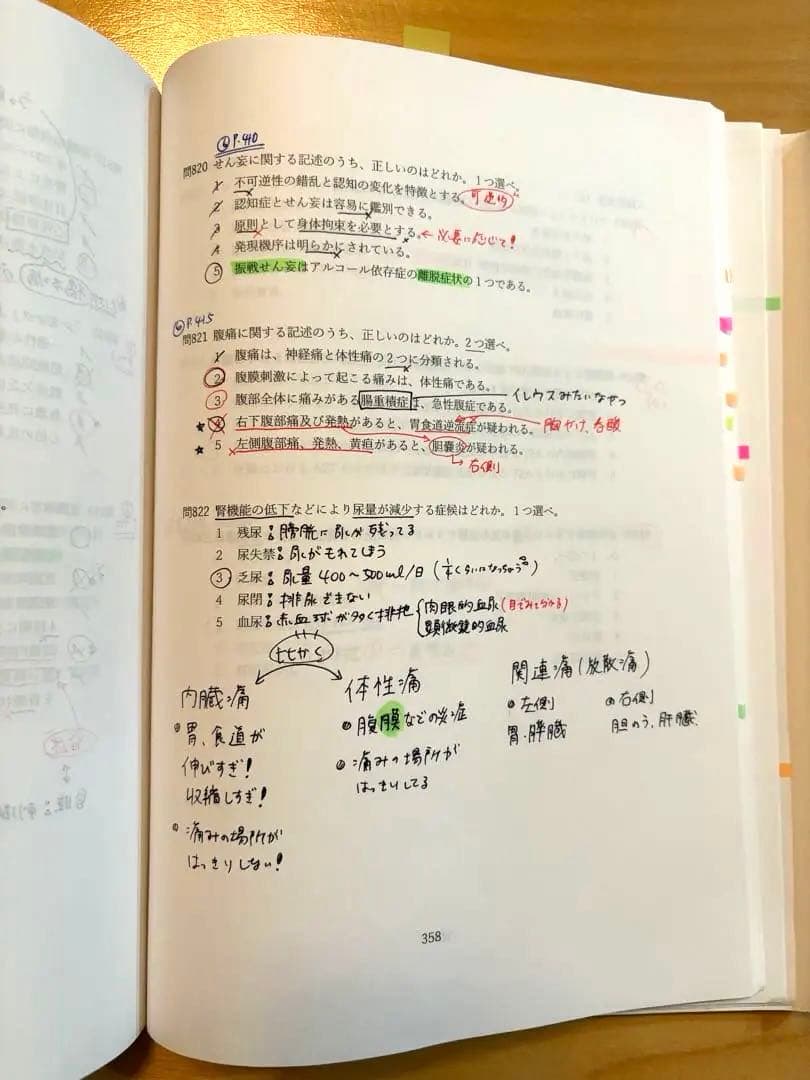 ⑥ P.440
問820 せん妄に関する記述のうち、正しいのはどれか。1つ選べ。
1 不可逆性の錯乱と認知の変化を特徴とする。 可逆的
2 認知症とせん妄は容易に鑑別できる。
3 原則として身体拘束を必要とする。 ← 必要に応じて!
4 発現機序は明らかにされている。
5 振戦せん妄はアルコール依存症の離脱症状の1つである。
⑥ P.445
問821 腹痛に関する記述のうち、正しいのはどれか。2つ選べ。
1 腹痛は、神経痛と体性痛の2つに分類される。
2 腹膜刺激によって起こる痛みは、体性痛である。
3 腹部全体に痛みがある腸重積症は、急性腹症である。 イレウスみたいなやつ
★ 4 右下腹部痛及び発熱があると、胃食道逆流症が疑われる。 胸やけ、呑酸
★ 5 左側腹部痛、発熱、黄疸があると、胆嚢炎が疑われる。
→右側
問822 腎機能の低下などにより尿量が減少する症候はどれか。1つ選べ。
1 残尿: 膀胱に尿が残ってる
2 尿失禁: 尿がもれてしまう
3 乏尿: 尿量 400〜500ml/日
4 尿閉: 排尿できない
5 血尿: 赤血球が多く排泄 肉眼的血尿(目でみて分かる)
顕微鏡的血尿
ヒヒかく
内臓痛 体性痛 関連痛(放散痛)
胃、食道が
伸びすぎ!
収縮しすぎ!
痛みの場所が
はっきりしない!
腹膜などの炎症
痛みの場所が
はっきりしてる
左側
胃、膵臓
右側
胆のう、肝臓
358